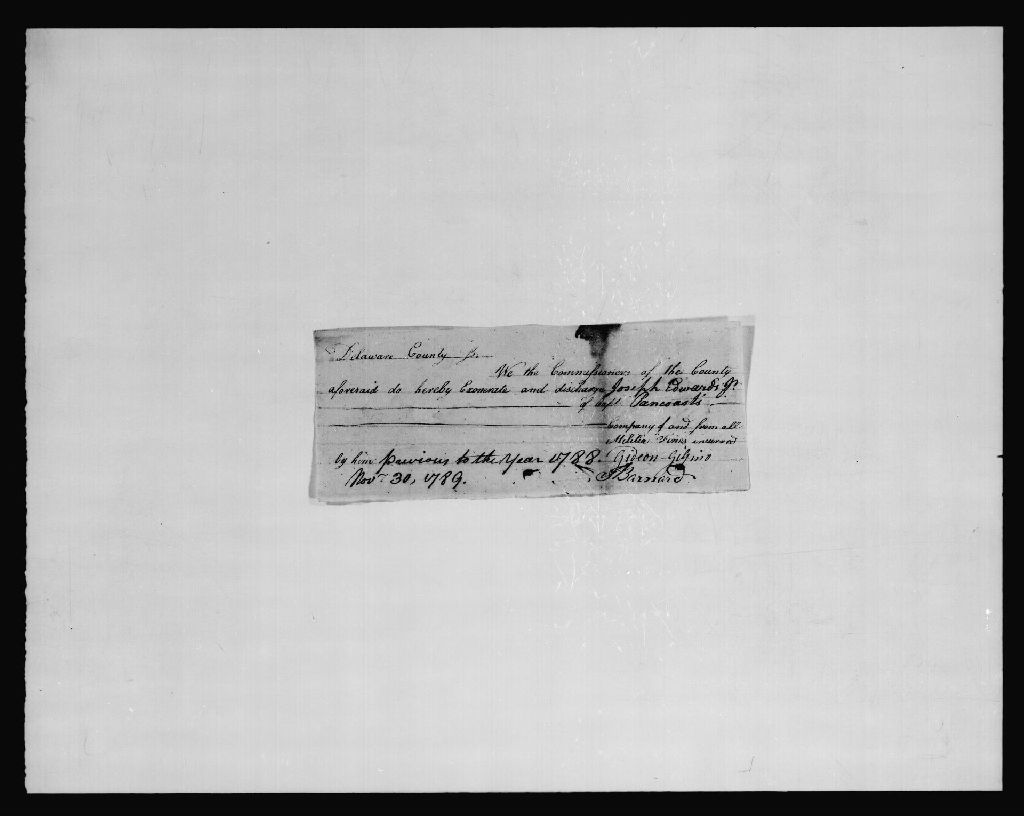 Delaware County Ss.
We the Commissioners of the County
aforesaid do hereby Exonerate and discharge Joseph Edwards Jr.
of Capt Pancoast's
Company of and from all
Militia Fines incurred
by him previous to the Year 1788.. Gideon Gilpin
Novr. 30, 1789. J Barnard